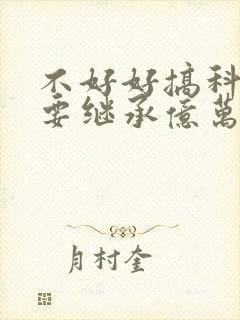 不好好搞科
要继承億萬
月村奎